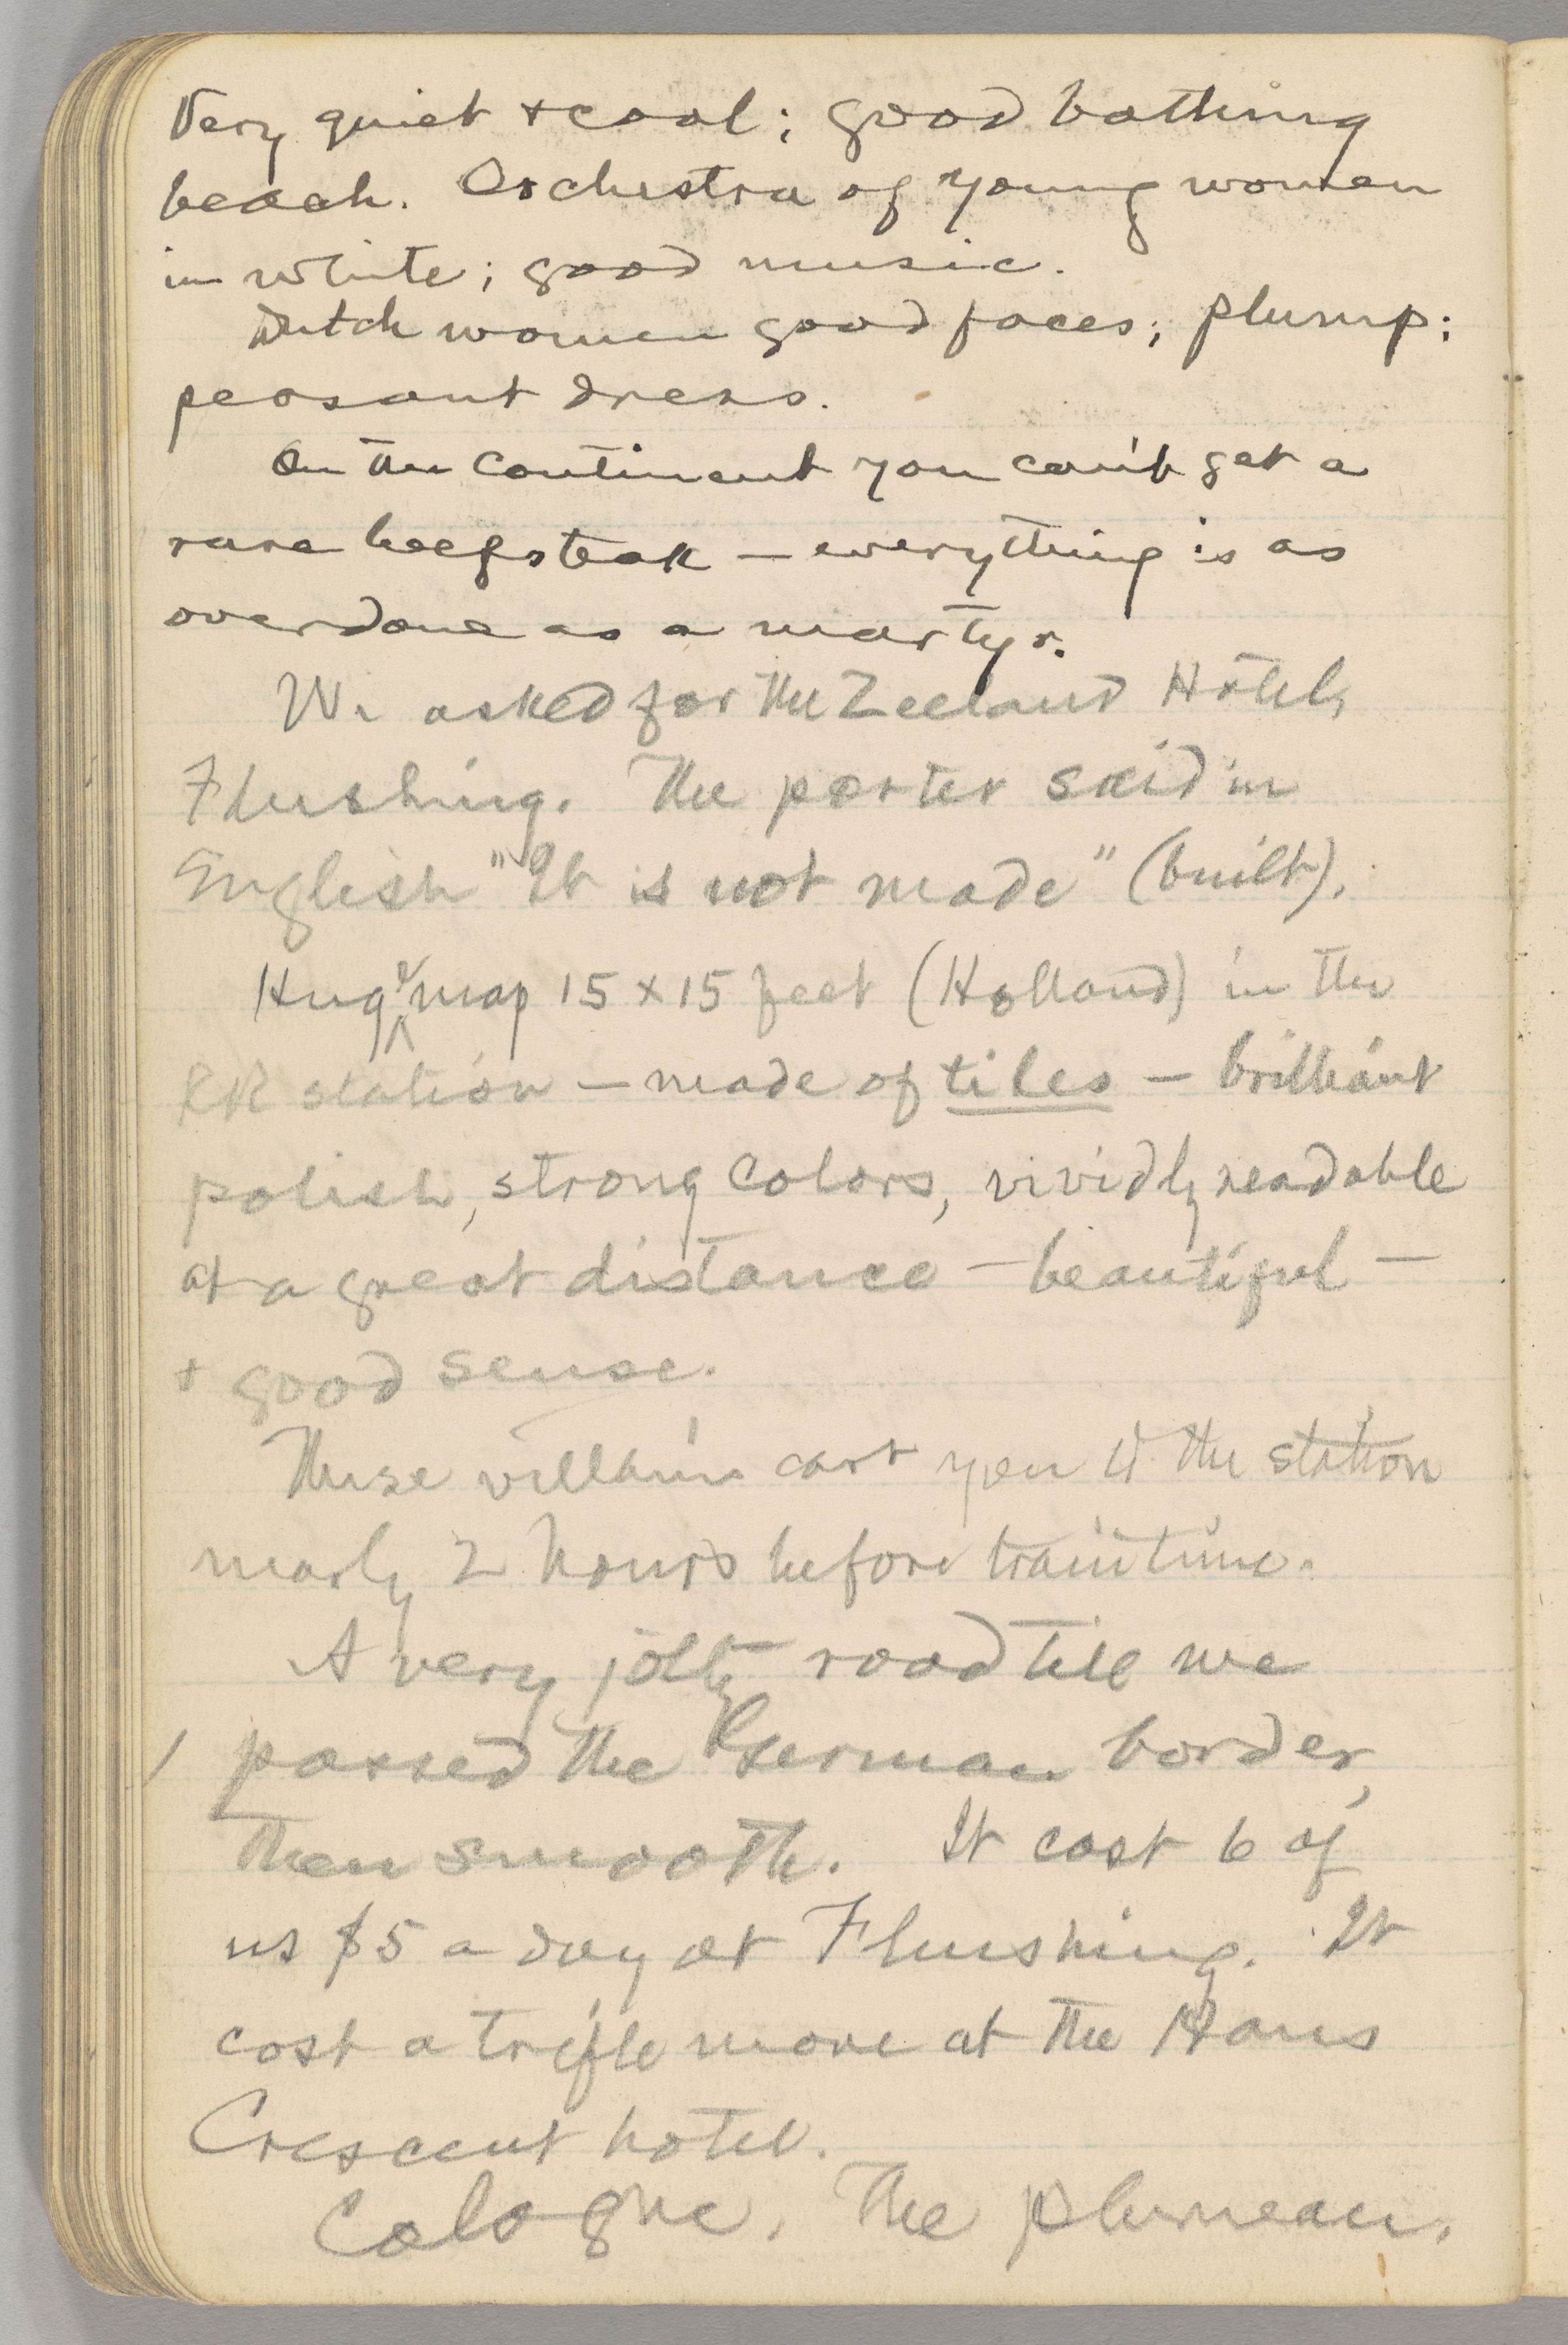 Very quiet + cool; good bathing
beach. Orchestra of young women
in white; good music.
Dutch women good faces; plump;
peasant dress.
On the Continent you can't get a
rare beefsteak — everything is as
overdone as a martyr.
We asked for the Zeeland Hotel,
Flushing. The porter said in
English "It is not made" (built).
Huge map 15 x 15 feet (Holland) in the
RR station — made of tiles — brilliant
polish, strong colors, vividly readable
at a great distance — beautiful —
+ good sense.
These villains cart you to the station
nearly 2 hours before train time.
A very jolty road till we
passed the German border,
then smooth. It cost 6 of
us $5 a day at Flushing. It
cost a trifle more at the Hans
Crescent hotel.
Cologne. The plumeau.